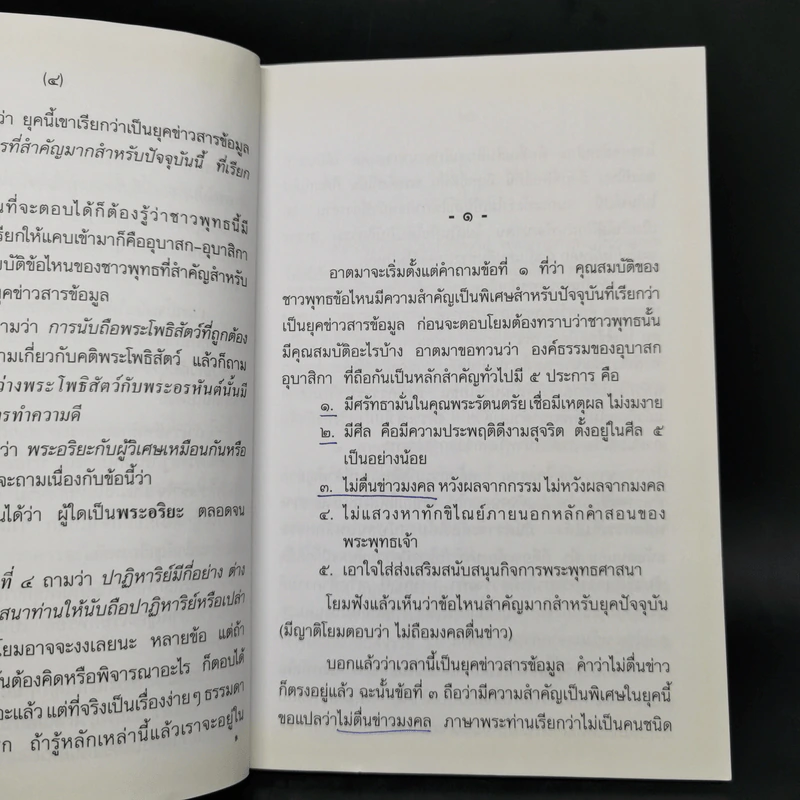 (๔)
ว่า ยุคนี้เขาเรียกว่าเป็นยุคข่าวสารข้อมูล
รที่สำคัญมากสำหรับปัจจุบันนี้ ที่เรียก
นที่จะตอบได้ก็ต้องรู้ว่าชาวพุทธนี้มี
รียกให้แคบเข้ามาก็คืออุบาสก-อุบาสิกา
มบัติข้อไหนของชาวพุทธที่สำคัญสำหรับ
ยุคข่าวสารข้อมูล
ามว่า การนับถือพระโพธิสัตว์ที่ถูกต้อง
ามเกี่ยวกับคติพระโพธิสัตว์ แล้วก็ถาม
ว่างพระโพธิสัตว์กับพระอรหันต์นั้นมี
ารทำความดี
ว่า พระอริยะกับผู้วิเศษเหมือนกันหรือ
จะถามเนื่องกับข้อนี้ว่า
นได้ว่า ผู้ใดเป็นพระอริยะ ตลอดจน
ที่ ๔ ถามว่า ปาฏิหาริย์มีกี่อย่าง ต่าง
สนาท่านให้นับถือปาฏิหาริย์หรือเปล่า
โยมอาจจะงงเลยนะ หลายข้อ แต่ถ้า
ันต้องคิดหรือพิจารณาอะไร ก็ตอบได้
อะแล้ว แต่ที่จริงเป็นเรื่องง่ายๆ ธรรมดา
ก ถ้ารู้หลักเหล่านี้แล้วเราจะอยู่ใน
- ๑ -
อาตมาจะเริ่มตั้งแต่คำถามข้อที่ ๑ ที่ว่า คุณสมบัติของ
ชาวพุทธข้อไหนมีความสำคัญเป็นพิเศษสำหรับปัจจุบันที่เรียกว่า
เป็นยุคข่าวสารข้อมูล ก่อนจะตอบโยมต้องทราบว่าชาวพุทธนั้น
มีคุณสมบัติอะไรบ้าง อาตมาขอทวนว่า องค์ธรรมของอุบาสก
อุบาสิกา ที่ถือกันเป็นหลักสำคัญทั่วไปมี ๕ ประการ คือ
๑. มีศรัทธามั่นในคุณพระรัตนตรัย เชื่อมีเหตุผล ไม่งมงาย
๒. มีศีล คือมีความประพฤติดีงามสุจริต ตั้งอยู่ในศีล ๕
เป็นอย่างน้อย
๓. ไม่ตื่นข่าวมงคล หวังผลจากกรรม ไม่หวังผลจากมงคล
๔. ไม่แสวงหาทักขิไณย์ภายนอกหลักคำสอนของ
พระพุทธเจ้า
๕. เอาใจใส่ส่งเสริมสนับสนุนกิจการพระพุทธศาสนา
โยมฟังแล้วเห็นว่าข้อไหนสำคัญมากสำหรับยุคปัจจุบัน
(มีญาติโยมตอบว่า ไม่ถือมงคลตื่นข่าว)
บอกแล้วว่าเวลานี้เป็นยุคข่าวสารข้อมูล คำว่าไม่ตื่นข่าว
ก็ตรงอยู่แล้ว ฉะนั้นข้อที่ ๓ ถือว่ามีความสำคัญเป็นพิเศษในยุคนี้
ขอแปลว่าไม่ตื่นข่าวมงคล ภาษาพระท่านเรียกว่าไม่เป็นคนชนิด